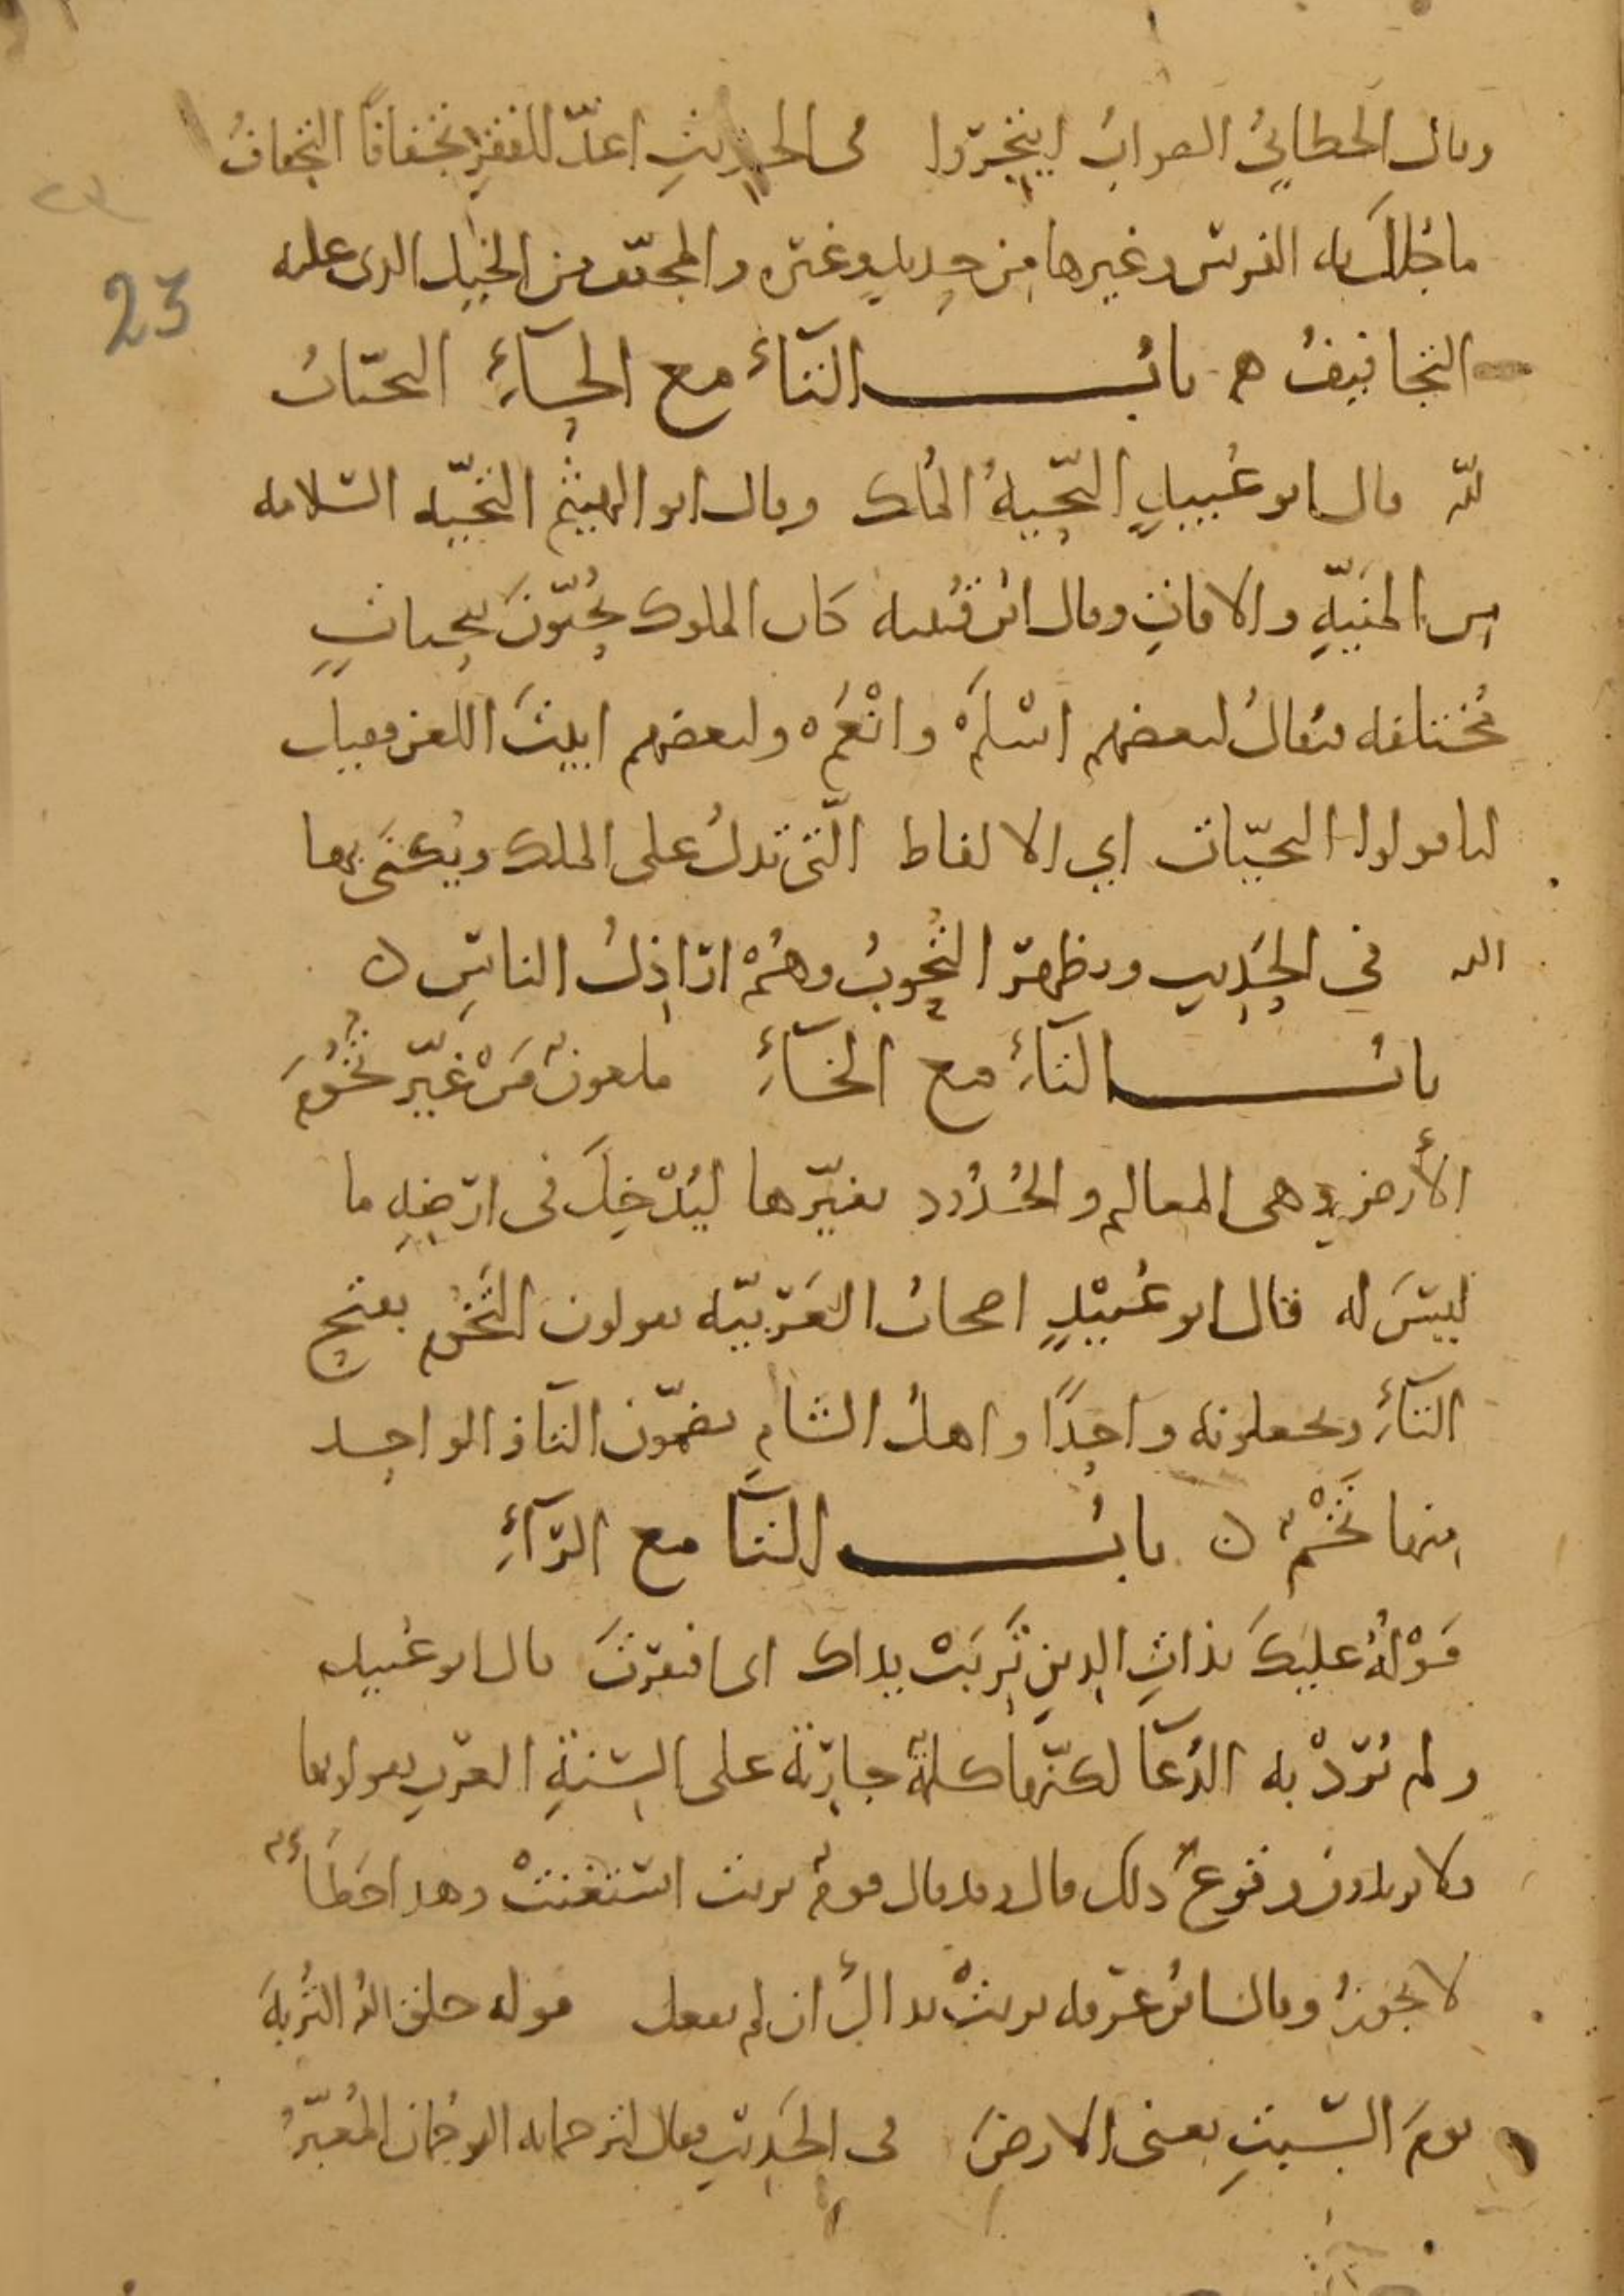 وقال الخطابي الصواب ايتجروا في الحديث اعدّ للفقر تجفافًا التجفافُ
ما جُلّل به الفرس وغيرها من حديد وغيره والمجفّف من الخيل الذي عليه
التجافيفُ ه بابُ التاء مع الحاءِ التحيّاتُ
لله قال ابو عُبيدٍ التّحيةُ المُلك وقال ابو الهيثم التحيّه السّلامه
من المنيّةِ والافاتِ وقال ابن قتيبه كان الملوك يُحيّونَ بتحياتٍ
مُختلفه فيُقالُ لبعضهم اسْلَمْ وانْعَمْ ه ولبعضهم ابيتَ اللعن فقيل
لنا قولوا التحيّات اي الالفاظ الّتي تدلُ على الملك ويُكنَى بها
الله في الحَديث وتظهر التُحُوتُ وهُمْ ارَاذِلُ الناسِ ن
بابُ التاءِ مع الخاءِ ملعونٌ مَنْ غيّر تُخُومَ
الأرضِ وهي المعالم والحُدُود يغيّرها ليُدْخِلَ في ارْضِهِ ما
ليسَ له قال ابو عُبَيْدٍ اصحابُ العَرَبيّه يقولون التَخُوم بفتح
التاءِ ويجعلونه واحدًا واهلُ الشام يضمّون التاء والواحد
منها تَخْمٌ ن بابُ التا مع الرّاءِ
قَوْلُهُ عليكَ بذاتِ الدينِ تَرِبَتْ يداك اي افتقرتَ قال ابو عُبيد
ولم يُرَدْ به الدُعَا لكنّها كلمةٌ جاريَة على السنةِ العَرب يقولونها
ولا يريدون وقوعَ ذلك قال وقد قال قومٌ تربت استغنتْ وهذا خطَأٌ
لا يجوزُ وقال ابنُ عرفه تربتْ يداكَ ان لم تفعل قوله خلق اللهُ التُربهَ
يومَ السّبتِ يعني الارضَ في الحَديث فقال لترجمانه الترجمان المُعبّرُ
23